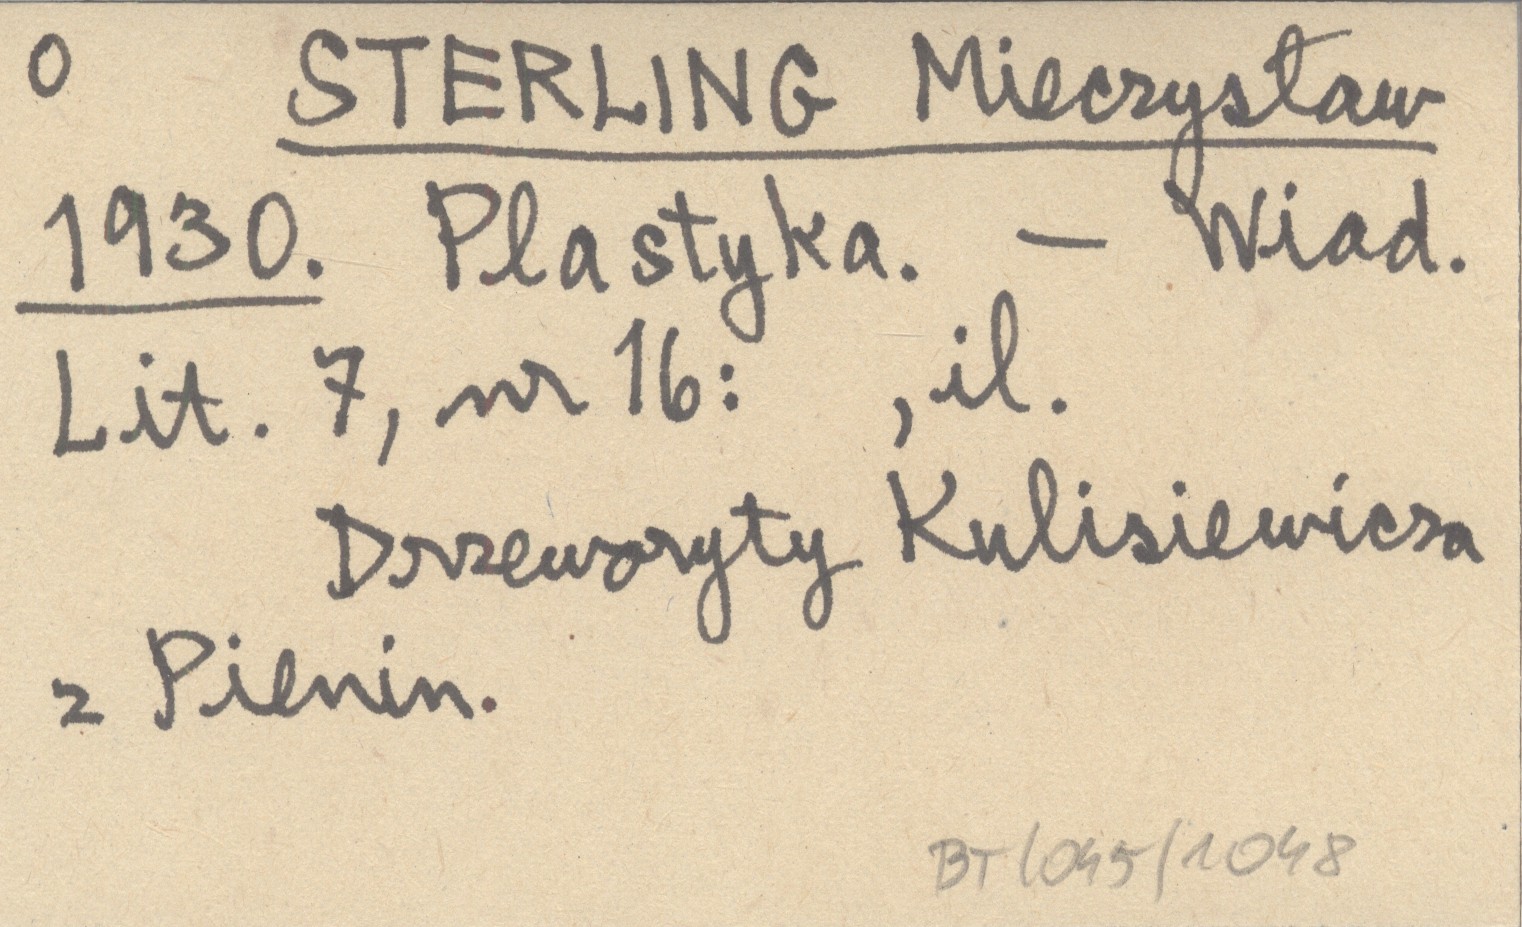 O STERLING Mieczysław
1930. Plastyka. — Wiad.
Lit. 7, nr 16: , il.
Drzeworyty Kulisiewicza
z Pienin.
BT/045/1048